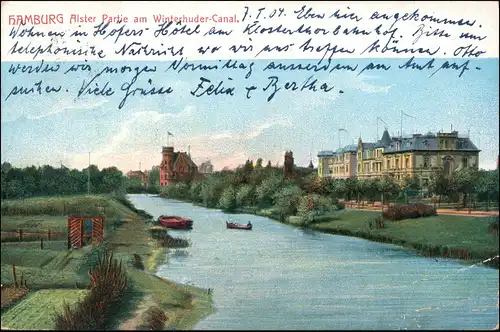 HAMBURG Alster Partie am Winterhuder-Canal.
7. I. 04. Eben hier angekommen.
Wohnen in Höfers Hotel am Klosterthorbahnhof. Bitte um
telephonische Nachricht wo wir uns treffen können. Otto
werden wir morgen Vormittag ausserdem am Amt auf-
suchen. Viele Grüsse Felix & Bertha.